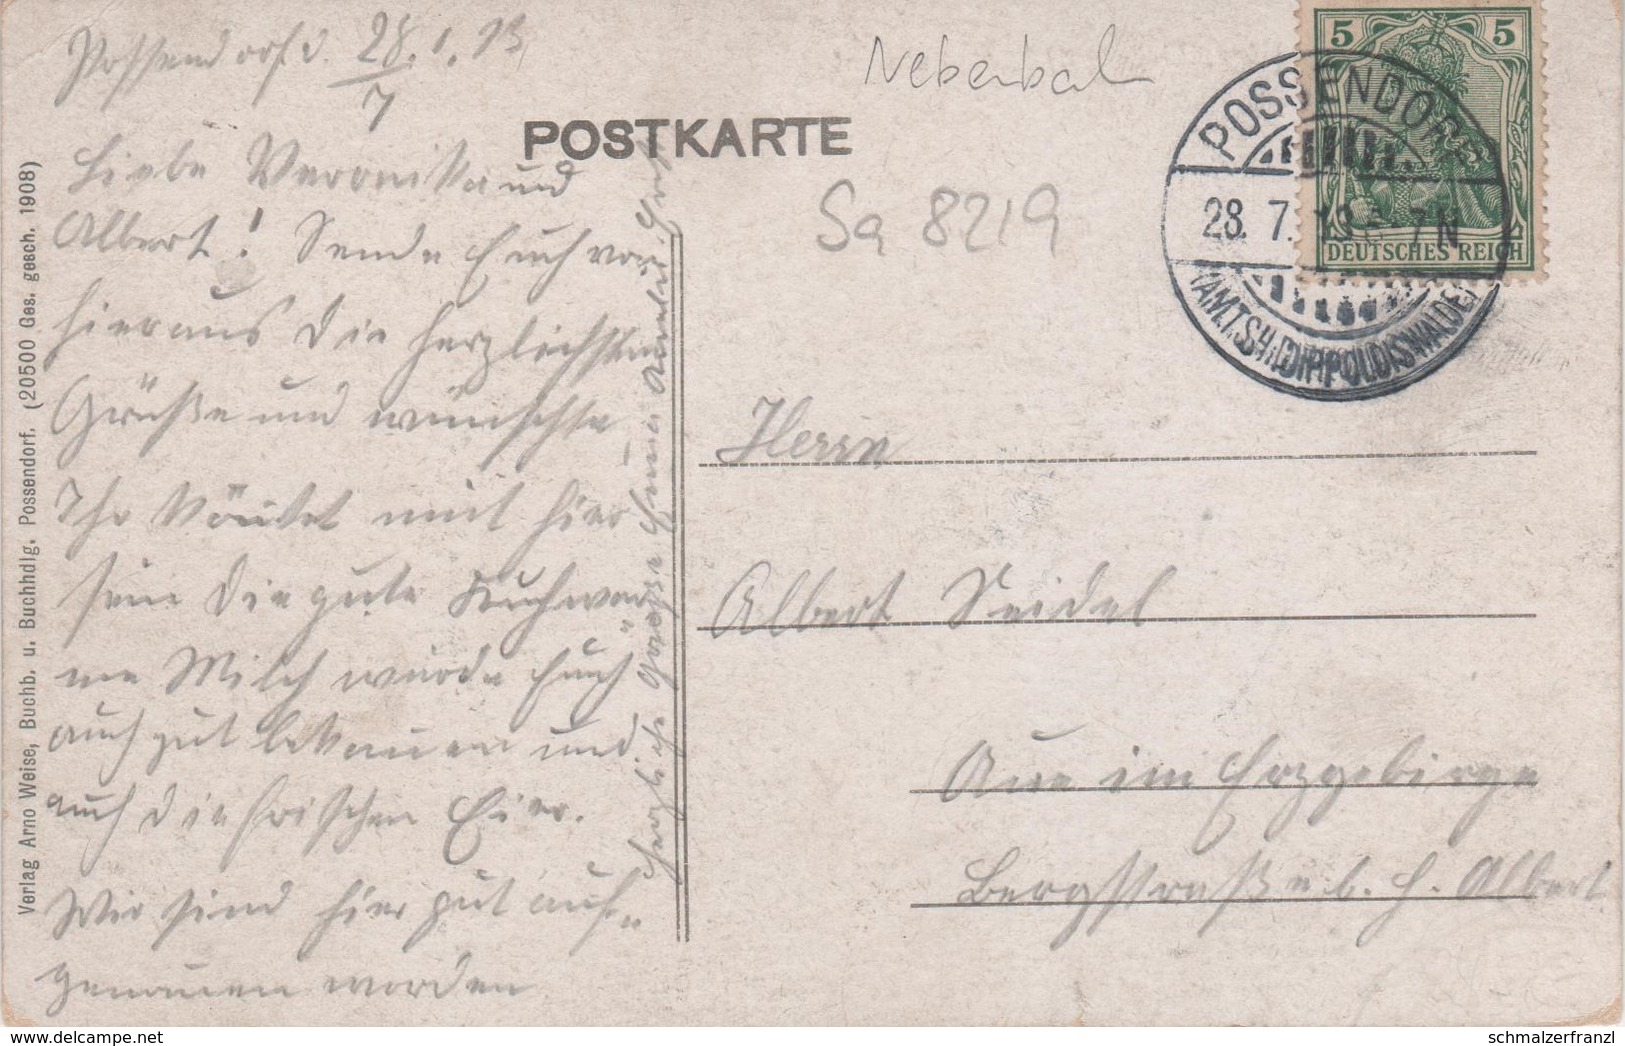 Possendorf d. 28./7. 13.
Liebe Veronika und
Albert! Sende Euch von
hieraus die herzlichsten
Grüße und wünschte
Ihr könntet mit hier
sein die gute kuhwar
me Milch würde Euch
auch gut bekommen und
auch die frischen Eier.
Wir sind hier gut auf-
genommen worden
Herzliche Grüße
POSTKARTE
Sa 8219
POSSENDORF
28. 7. 13 7N
(AMTSH. DIPPOLDISWALDE)
5 5
DEUTSCHES REICH
Herrn
Albert Seidel
Aue im Erzgebirge
Bergstraße b. H. Albert
Verlag Arno Weise, Buchb. u. Buchhdlg. Possendorf. (20500 Ges. gesch. 1908)
schmalzerfranzl